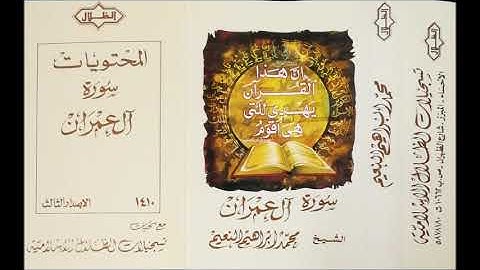 الظلال
المحتويات
سورة
آل عمران
١٤١٠
الإصدار الثالث
مع تحيات
تسجيلات الظلال الإسلامية
إن هذا
القرآن
يهدي للتي
هي أقوم
سورة آل عمران
الشيخ
محمد إبراهيم النعيم
محمد إبراهيم النعيم
الظلال
تسجيلات الظلال الإسلامية